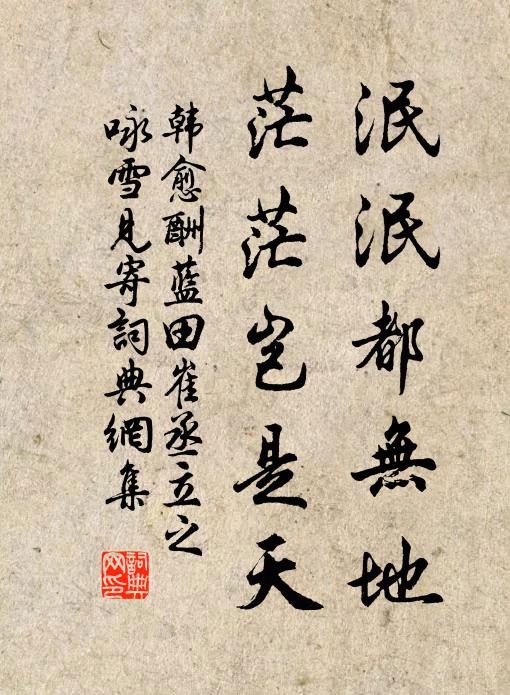 泯泯都無地
茫茫岂是天
韩愈酬藍田崔丞立之
咏雪見寄詞典網集
詞典网印